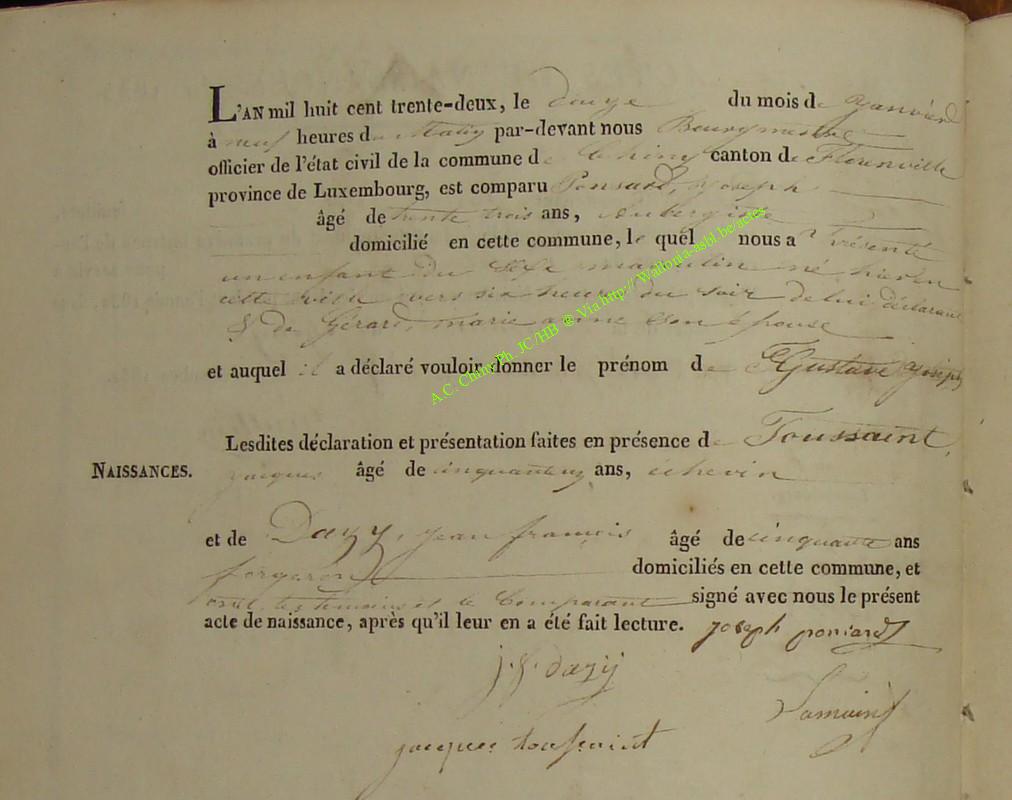 L'AN mil huit cent trente-deux, le douze du mois de Janvier
à neuf heures du Matin par-devant nous Bourgmestre
officier de l'état civil de la commune de Chiny canton de Florenville
province de Luxembourg, est comparu Ponsard, Joseph
âgé de trente trois ans, Aubergiste
domicilié en cette commune, le quel nous a Présenté
un enfant du Sexe masculin né hier en
cette ville vers six heures du soir de lui déclarant
& de Gérard, marie anne son épouse
et auquel il a déclaré vouloir donner le prénom de Gustave Joseph
Lesdites déclaration et présentation faites en présence de Toussaint,
NAISSANCES. jacques âgé de ans, échevin
et de Dazy, jean françois âgé de cinquante ans
forgeron domiciliés en cette commune, et
ont, les témoins et le Comparant signé avec nous le présent
acte de naissance, après qu'il leur en a été fait lecture. joseph ponsard
j. f. dazÿ
jacques toussaint
A.C. Chiny Ph. JC/HB ® Via http:// Wallonia-asbl.be/actes